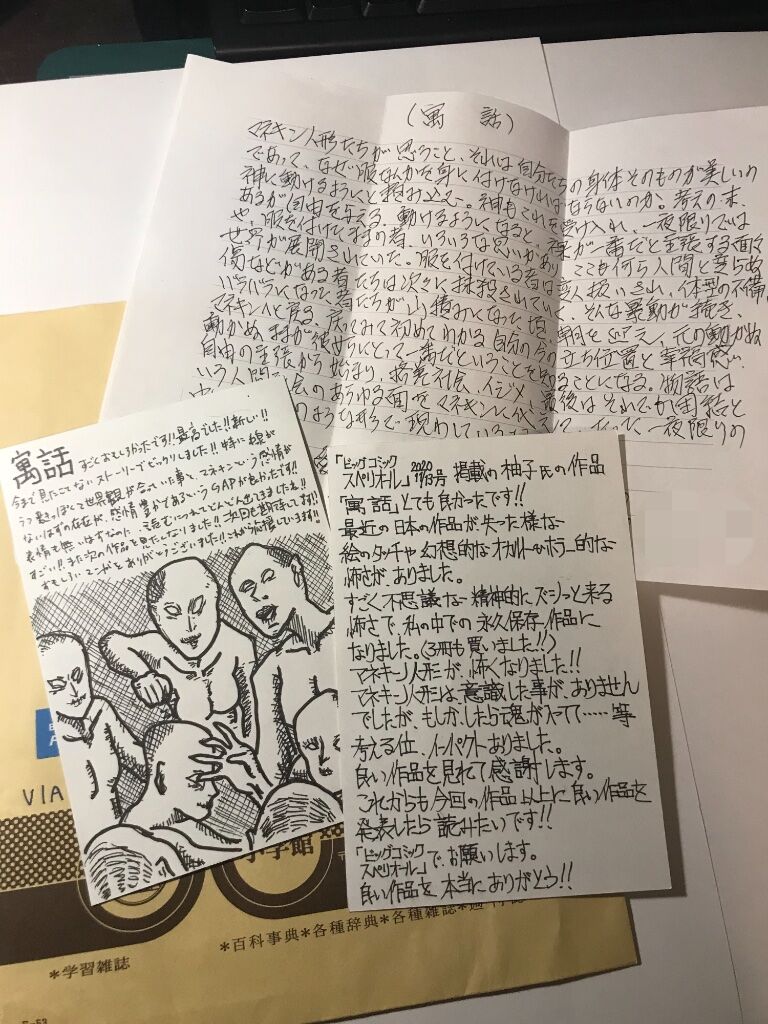 (寓話)
マネキン人形たちが思うこと、それは自分たちの身体そのものが美しいの
であって、なぜ服なんかを身に付けなければならないのか。
神に動けるようにと頼み込む。神もこれを受け入れ、一夜限りでは
あるが自由を与える。動けるようになると、裸が一番だと主張する面々
や、服を付けたままの者、いろいろな思いがあり、ここも何ら人間と変らぬ
世界が展開されていた。服を付けている者は変人扱いされ、体型の不備、
傷などがある者たちは次々に抹殺されていく。そんな暴動が
バラバラになった者たちが山積みになった頃、朝を迎え、元の動かぬ
マネキンへと戻る。戻ってみて初めてわかる自分の今の立ち位置と幸福感。
動かぬままが彼女らにとって一番だということを知ることになる。物語は
自由の主張から始まり、
いう人間社会のあらゆる面をマネキンに代え
のような形で現わしている
一夜限りの
寓話
すごくおもしろかったです!!最高でした!!新しい!!
今まで見たことないストーリーでビックリしました!!特に線が
うす黒っぽくて世界観が合っていた事と、マネキンという感情が
ないはずの存在が、感情豊かであるというGAPが良かったです!!
表情も無いはずなのに、読むにつれてどんどん出てきましたね!!
すごい!!また次の作品を見たくなりました!!次回も期待してます!!
おもしろいマンガをありがとうございました!!これからも応援しています!!
「ビッグコミック
スペリオール」2020 11/13号 掲載の柚子氏の作品
「寓話」とても良かったです!!
最近の日本の作品が失った様な
絵のタッチや幻想的なオカルトやホラー的な
怖さが、ありました。
すごく不思議な精神的にズシっと来る
怖さで、私の中での永久保存作品に
なりました。(3冊も買いました!!)
マネキン人形が、怖くなりました!!
マネキン人形は、意識した事が、ありません
でしたが、もしかしたら魂が入ってて……等
考える位、インパクトありました。
良い作品を見れて感謝します。
これからも今回の作品以上に良い作品を
発表したら読みたいです!!
「ビッグコミック
スペリオール」で、お願いします。
良い作品を本当にありがとう!!
VIA
小学館
*学習雑誌
*百科事典*各種辞典*各種雑誌*週刊誌